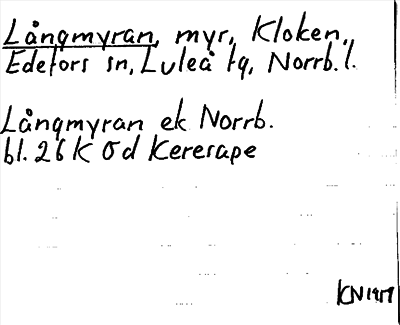 Långmyran, myr, Kloken,
Edefors sn, Luleå tg, Norrb. l.
Långmyran ek Norrb.
bl. 26 K 0d Kererape